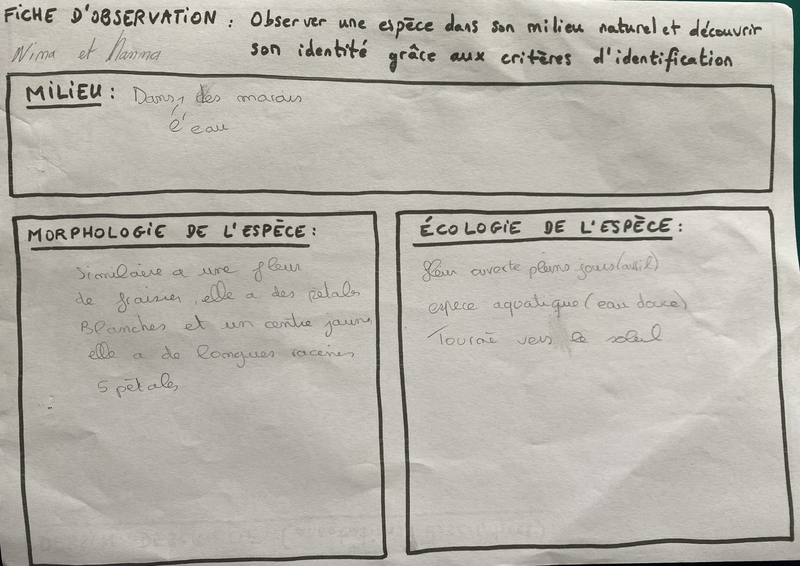 FICHE D'OBSERVATION : Observer une espèce dans son milieu naturel et découvrir
son identité grâce aux critères d'identification
Nima et
MILIEU : Dans, des marais
l'eau
MORPHOLOGIE DE L'ESPÈCE :
Similaire a une fleur
de fraisier, elle a des pétals
Blanches et un centre jaune,
elle a de longues racines
5 pétales
ÉCOLOGIE DE L'ESPÈCE :
fleur ouverte pleins jours (avril)
espece aquatique (eau douce)
Tourné vers le soleil